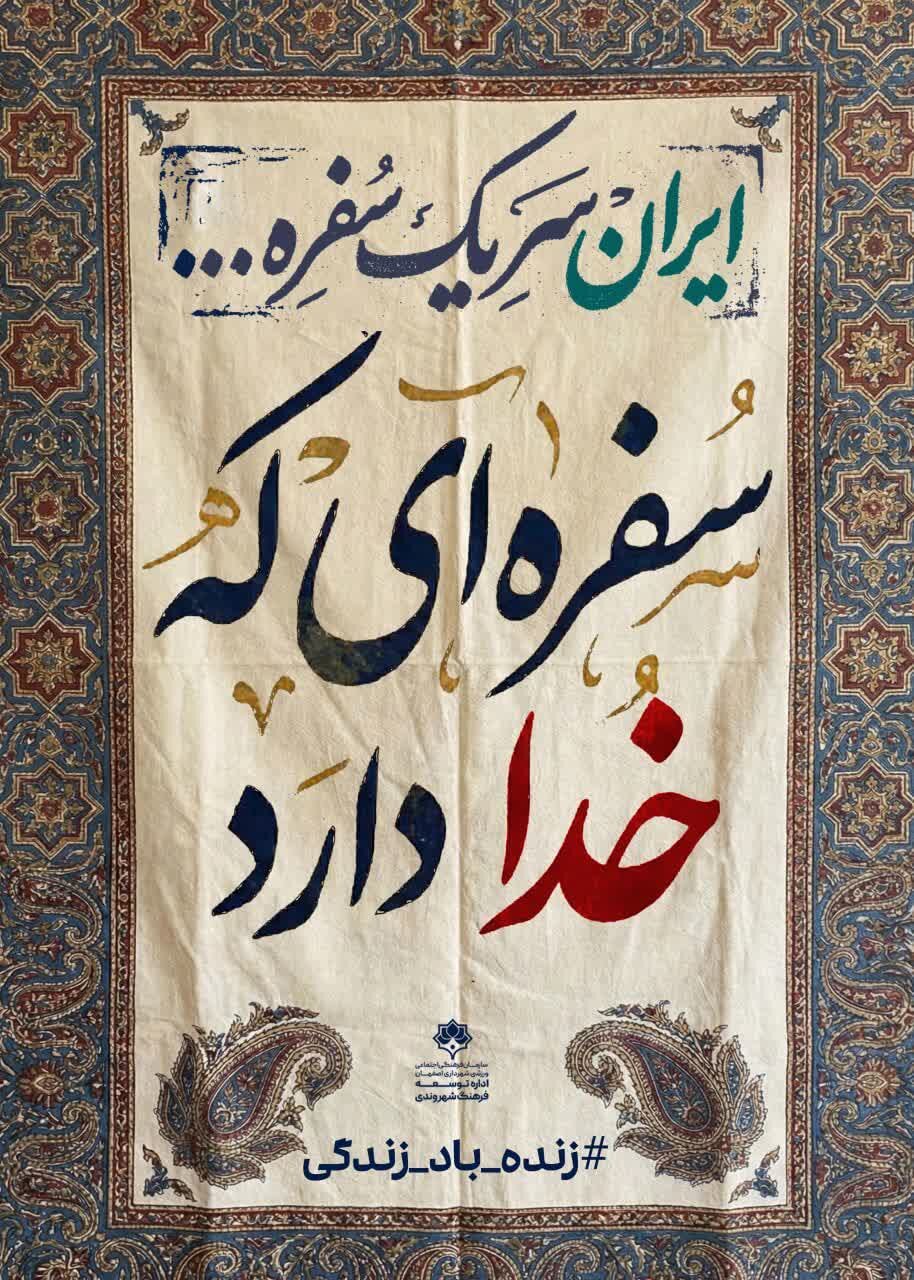 ایران سَرِ یک سُفرِه...
سُفره‌آی که
خُدا دارَد
سازمان فرهنگی اجتماعی
ورزشی شهرداری اصفهان
اداره توسعه
فرهنگ شهروندی
#زنده_باد_زندگی